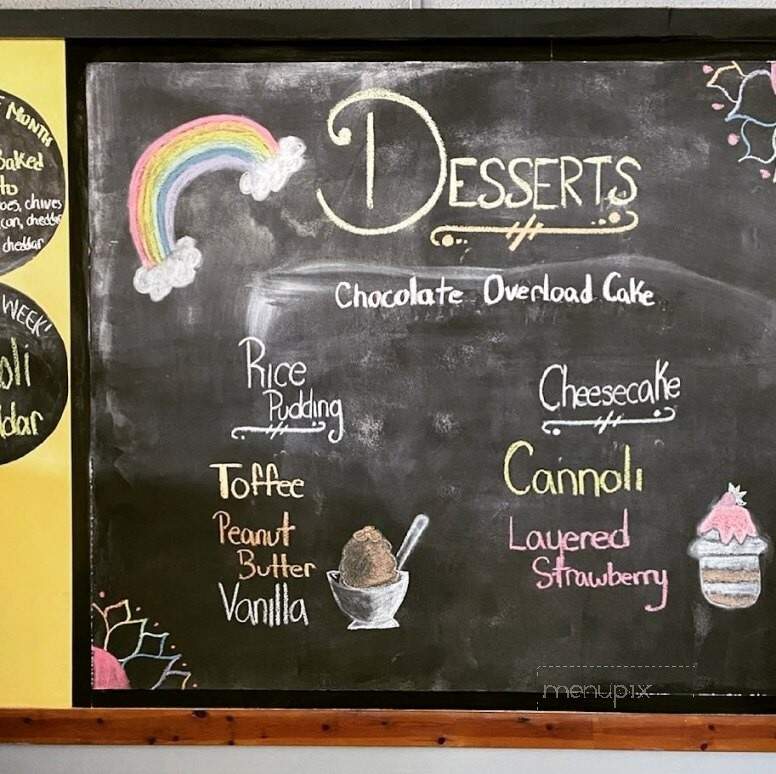 MONTH
Baked
to
oes, chives
con, cheddar
cheddar
WEEK!
oli
ddar
DESSERTS
Chocolate Overload Cake
Rice
Pudding
Toffee
Peanut
Butter
Vanilla
Cheesecake
Cannoli
Layered
Strawberry
menupix